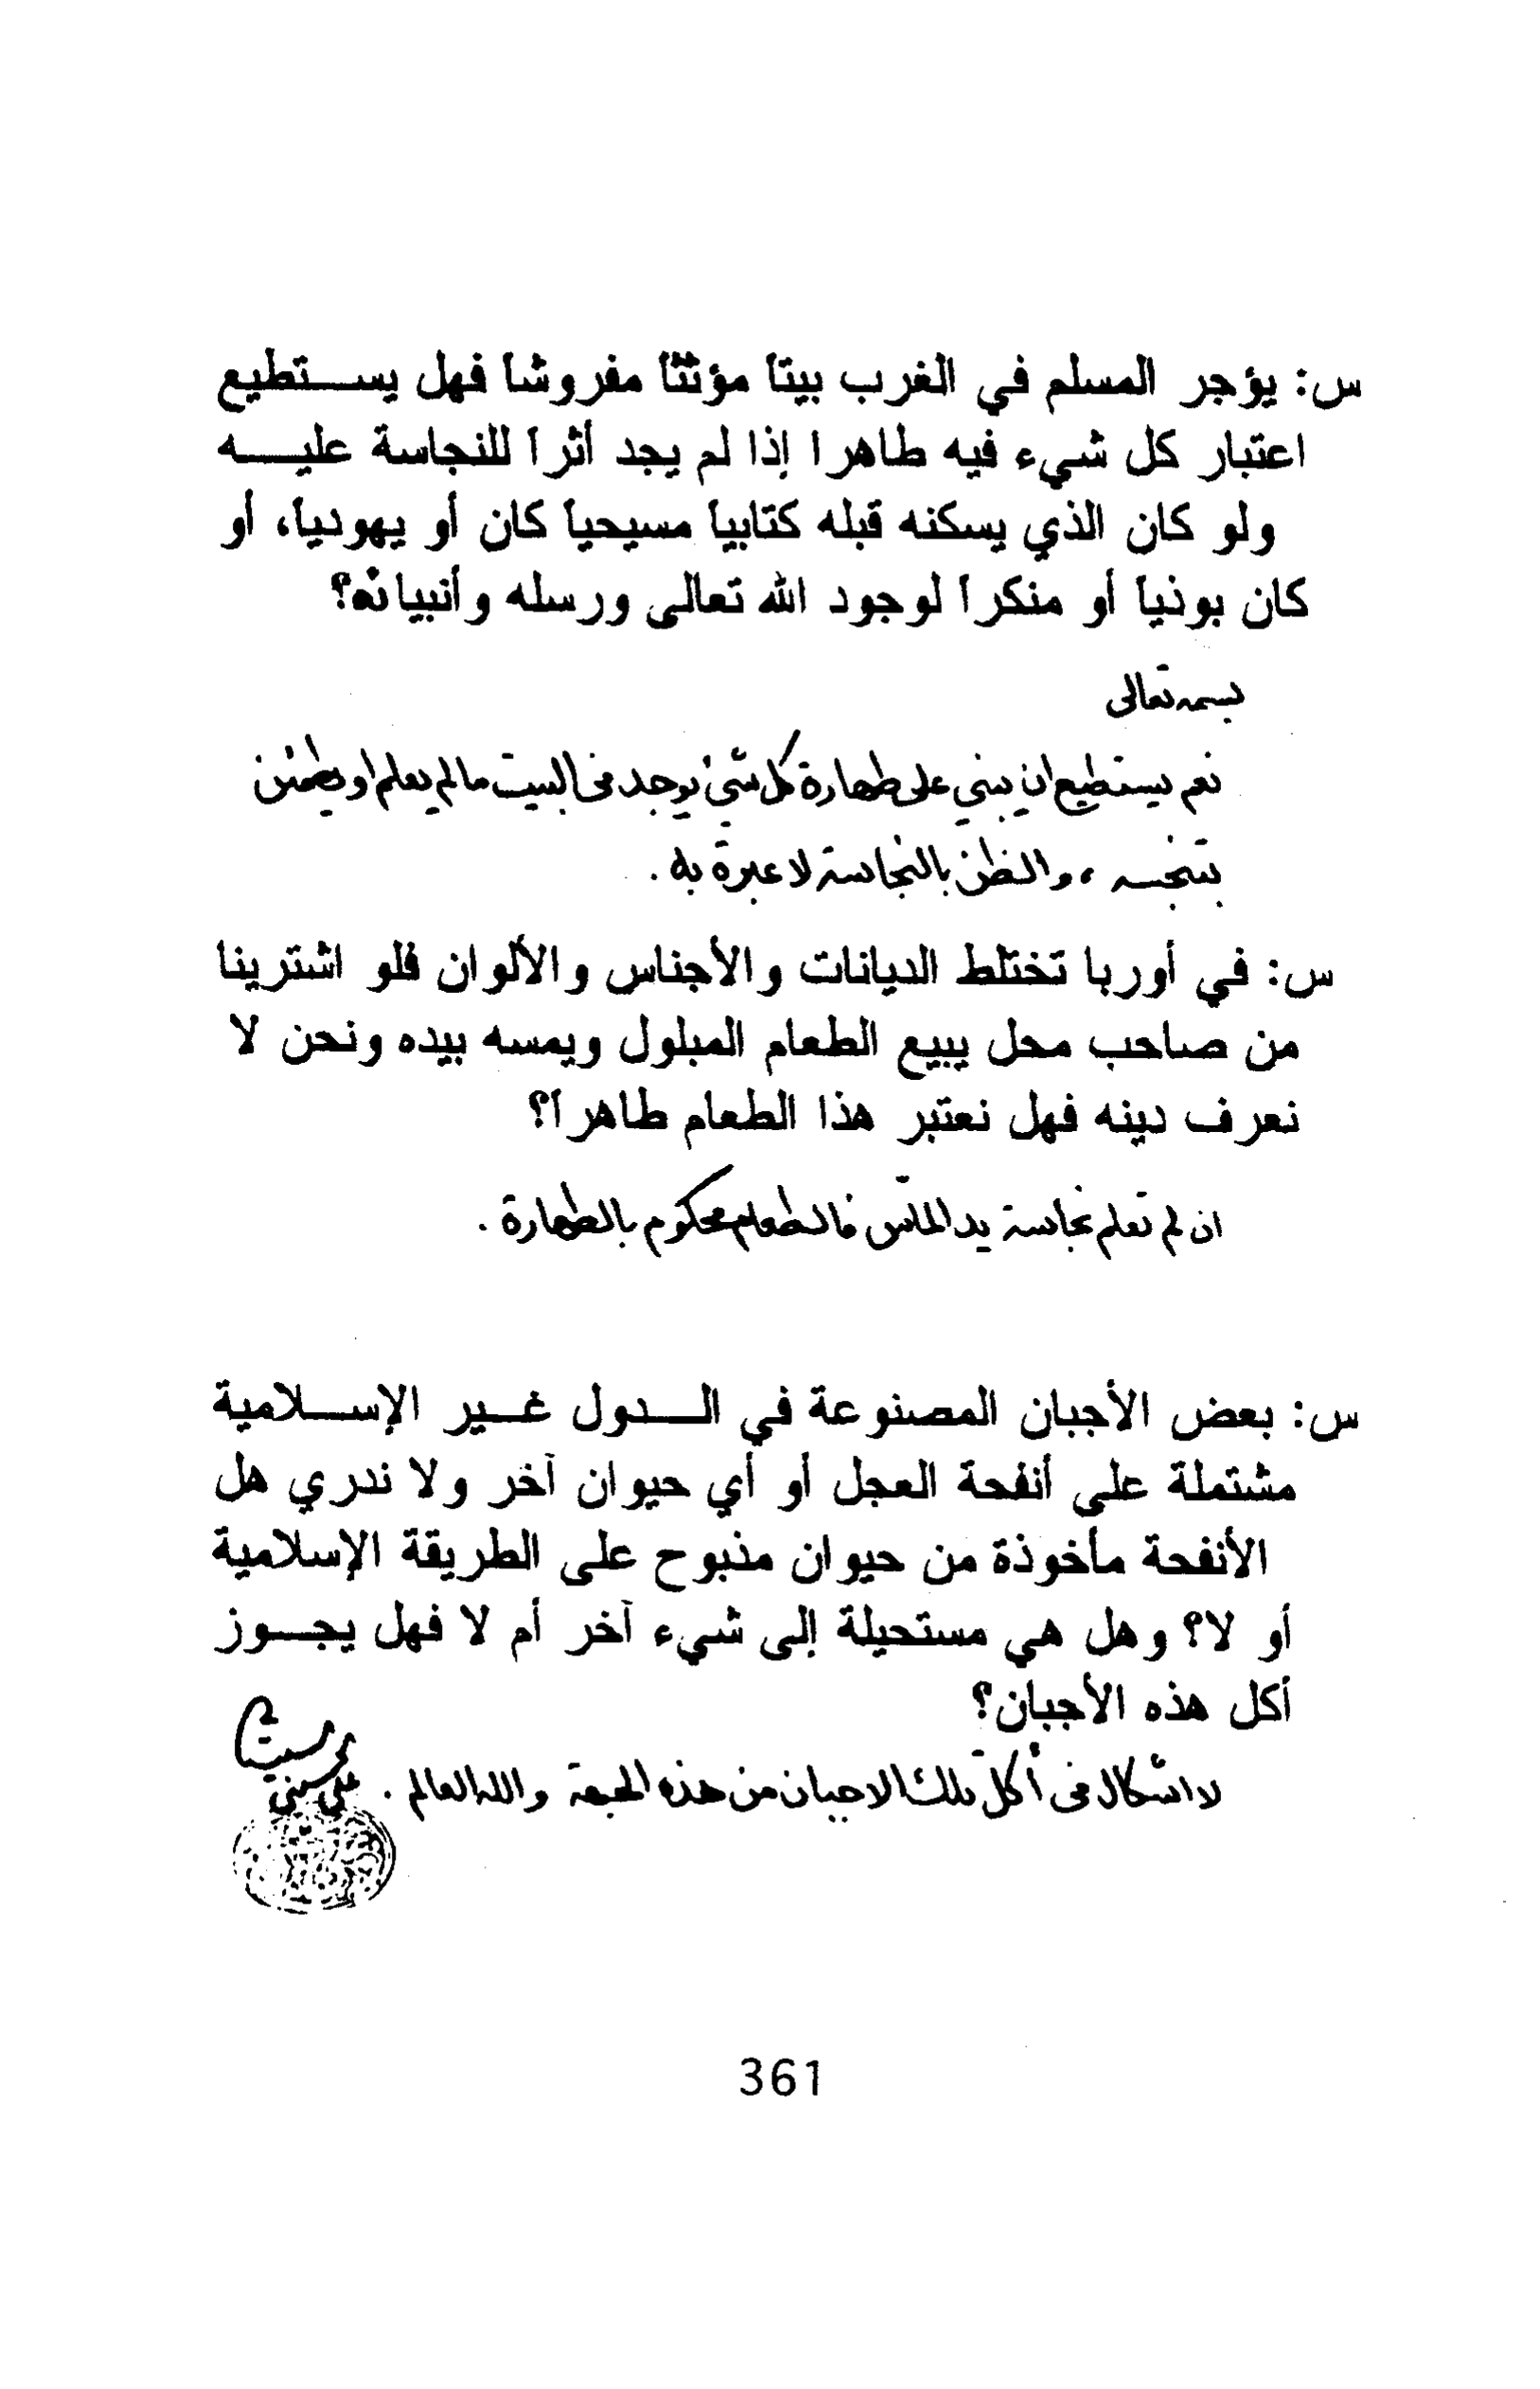 س: يؤجر المسلم في الغرب بيتاً مؤثثاً مفروشاً فهل يستطيع
اعتبار كل شيء فيه طاهرا إذا لم يجد أثراً للنجاسة عليه
ولو كان الذي يسكنه قبله كتابياً مسيحياً كان أو يهودياً، أو
كان بوذياً أو منكراً لوجود الله تعالى ورسله وأنبيائه؟
بسمه تعالى
نعم يستطيع ان يبني على طهارة كل شيئ يوجد في البيت ما لم يعلم او يطمئن
بتنجسه ، والظن بالنجاسة لا عبرة به .
س: في أوربا تختلط الديانات والأجناس والألوان فلو اشترينا
من صاحب محل يبيع الطعام المبلول ويمسه بيده ونحن لا
نعرف دينه فهل نعتبر هذا الطعام طاهراً؟
ان لم تعلم نجاسة يد الماسّ فالطعام محكوم بالطهارة .
س: بعض الأجبان المصنوعة في الدول غير الإسلامية
مشتملة على أنفحة العجل أو أي حيوان آخر ولا ندري هل
الأنفحة مأخوذة من حيوان مذبوح على الطريقة الإسلامية
أو لا؟ وهل هي مستحيلة إلى شيء آخر أم لا فهل يجوز
أكل هذه الأجبان؟
لا اشكال في أكل تلك الاجبان من هذه الجهة والله العالم .
361